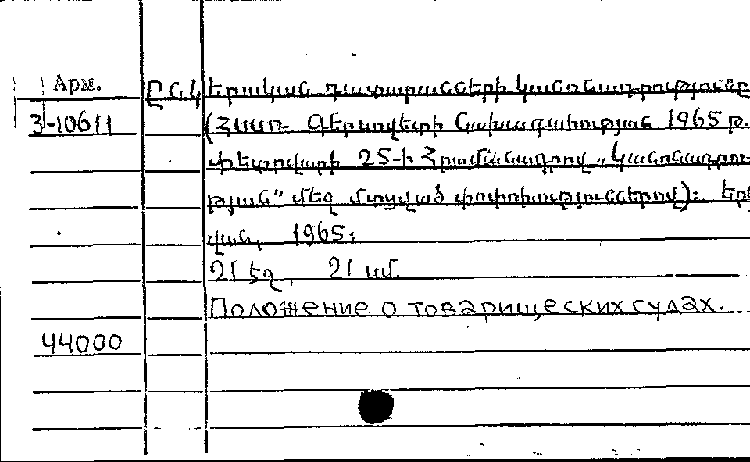 Арм.
3-10611
44000
ԸՆԿ
երական դատարանների կանոնադրությունը
(Հաստ. Գերսովետի Նախագահության 1965 թ.
փետրվարի 25-ի Հրամանագրով „Կանոնադրու
թյան“ մեջ մտցված փոփոխություններով): Երե
վան, 1965:
21 եղ 21 սմ.
Положение о товарищеских судах.